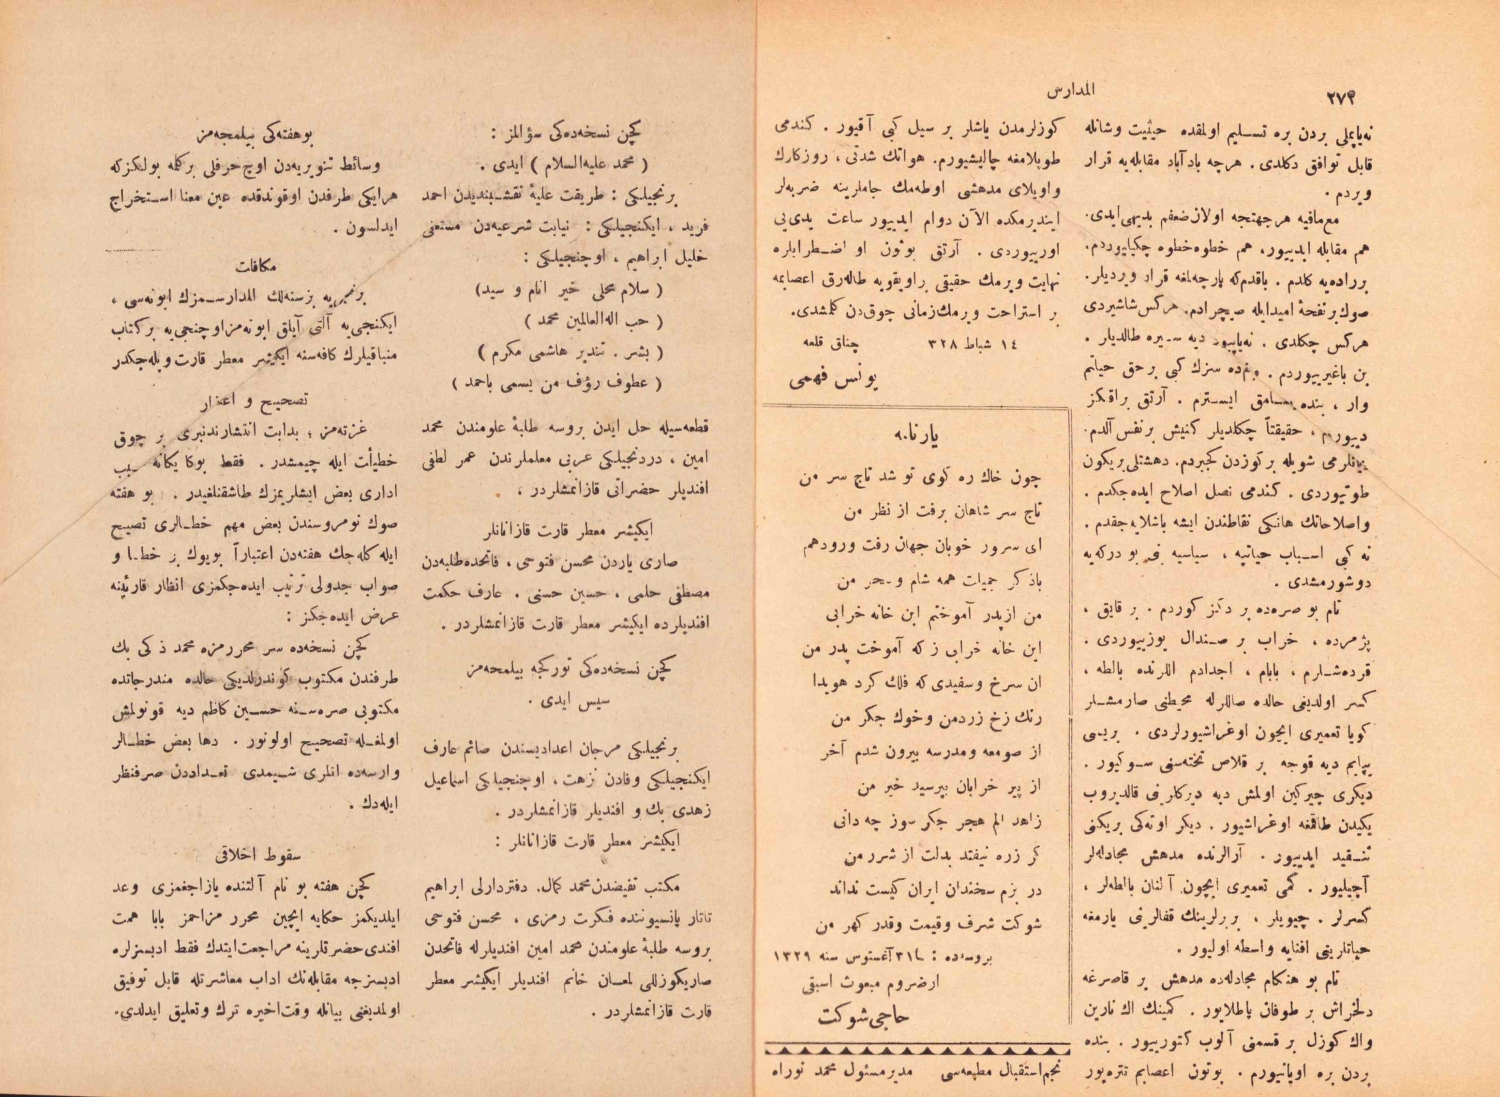 ٢٧٣
المدارس
نه‌یاپملی بردن بره تسلیم اولمقده حیثیت وشانله
قابل توافق دكلدی. هرچه بادآباد مقابله‌یه قرار
ویردم .
مع‌مافیه هرجهتجه اولان‌ضعفم بدیهی‌ایدی.
هم مقابله ایدییور، هم خطوه‌خطوه چكیلیوردم.
برراده‌یه كلدم . باقدم‌كه پارچه‌لمغه قرار ویردیلر.
صوك‌برنفحهٔ امیدایله صیچرادم. هركس‌شاشیردی
هركس چكلدی . نه‌یاپیور دیه سیره طالدیلر .
بن باغیرییوردم . بنده سزك كبی برحق حیاتم
وار ، بنده یشامق ایسترم . آرتق براقكز
دییورم ، حقیقتاً چكلدیلر كنیش برنفس آلدم.
یاپیلرمی شویله بركوزدن كچیردم. دهشتلی‌بریكون
طوتیوردی . كندمی نصل اصلاح ایده‌جكدم .
واصلاحاتك هانكی نقاطندن ایشه باشلایه‌جقدم .
نه كبی اسباب حیاتیه ، سیاسیه بنی بودركه‌یه
دوشورمشدی .
تام بو صره‌ده بر دكز كوردم . بر قایق ،
پژمرده ، خراب بر صندال یوزییوردی .
قرده‌شلرم ، بابام ، اجدادم اللرنده بالطه ،
كسر اولدیغی حالده صاللرله محیطنی صارمشلر
كویا تعمیری ایچون اوغراشیورلردی . بریسی
یپایم دیه قوجه بر قلاص تخته‌سنی سوكیور .
دیكری چیركین اولمش دیه دیركلرینی قالدیروب
یكیدن طاقمغه اوغراشیور . دیكر اوته‌كی بریكنی
تنقید ایدییور . آرالرنده مدهش مجادله‌لر
آچیلیور . كمی تعمیری ایچون آلنان بالطه‌لر ،
كسرلر . چیویلر ، بربرلرینك قفالرینی یارمغه
حیاتلرینی افنایه واسطه اولیور .
تام بو هنكام مجادله‌ده مدهش بر قاصرغه
دلخراش بر طوفان پاطلایور . كمینك اك نارین
واك كوزل بر قسمنی آلوب كتورییور . بنده
بردن بره اویانیورم . بوتون اعصابم تتره‌یور
كوزلرمدن یاشلر بر سیل كبی آقیور . كندمی
طوپلامغه چالیشیورم. هوانك شدتی ، روزكارك
واویلای مدهشی اوطه‌مك جاملرینه ضربه‌لر
ایندرمكده الآن دوام ایدییور ساعت یدی‌یی
اورییوردی . آرتق بوتون او اضطرابلره
نهایت ویرمك حقیقی براویقویه طاله‌رق اعصابمه
بر استراحت ویرمك‌زمانی چوق‌دن كلمشدی.
١٤ شباط ٣٢٨ چناق قلعه
یونس فهمی
یارنامه
چون خاك ره كوی تو شد تاج سر من
تاج سر شاهان برفت از نظر من
ای سرور خوبان جهان رفت ورودهم
باذكر جمیلت همه شام وسحر من
من ازپدر آموختم این خانه خرابی
این خانه خرابی زكه آموخت پدر من
ان سرخ وسفیدی كه فلك كرد هویدا
رنك زخ زردمن وخوك جكر من
از صومعه ومدرسه بیرون شدم آخر
از پیر خرابان بپرسید خبر من
زاهد الم هجر جكر سوز چه دانی
كر زره نیفتد بدلت از شرر من
در بزم سخندان ایران كیست نداند
شوكت شرف وقیمت وقدر كهر من
بروسه‌ده : ٣١ آغستوس سنه ١٣٢٩
ارضروم مبعوث اسبقی
حاجی شوكت
نجم‌استقبال مطبعه‌سی مدیرمسئول محمد نوراه
كچن نسخه‌ده‌كی سؤالمز :
( محمد علیه‌السلام ) ایدی .
برنجیلكی : طریقت علیهٔ نقشبندیدن احمد
فرید ، ایكنجیلكی : نیابت شرعیه‌دن مستغنی
خلیل ابراهیم ، اوچنجیلكی :
( سلام محلی خیر انام و سید)
( حب اله‌العالمین محمد )
( بشر . تندیر هاشمی مكرم )
( عطوف رؤف من یسمی باحمد )
قطعه‌سیله حل ایدن بروسه طلبهٔ علومندن محمد
امین ، دردنجیلكی عربی معلملرندن عمر لطفی
افندیلر حضراتی قازانمشلردر .
ایكیشر معطر قارت قازانانلر
صاری یاردن محسن فتوحی ، فاتحده‌طلبه‌دن
مصطفی حلمی ، حسین حسنی ، عارف حكمت
افندیلرده ایكیشر معطر قارت قازانمشلردر .
كچن نسخه‌ده‌كی توركجه بیلمجه‌مز
سیس ایدی .
برنجیلكی مرجان اعدادیسندن صائم عارف
ایكنجیلكی وفادن نزهت ، اوچنجیلكی اسماعیل
زهدی بك و افندیلر قازانمشلردر .
ایكیشر معطر قارت قازانانلر :
مكتب تفیضدن محمد كمال. دفتردارلی ابراهیم
تاتار پانسیوننده فكرت رمزی ، محسن فتوحی
بروسه طلبهٔ علومندن محمد امین افندیلرله فاتحدن
صاریكوزللی لمعان خانم افندیلر ایكیشر معطر
قارت قازانمشلردر .
بوهفته‌كی بیلمجه‌مز
وسائط تنویریه‌دن اوچ حرفلی بركله بولكزكه
هرایكی طرفدن اوقوندقده عین معنا استخراج
ایدلسون .
مكافات
برنجی‌یه برسنه‌لك المدارسمزك ابونه‌سی ،
ایكنجی‌یه آلتی آیلق ابونه‌مز اوچنجی‌یه بركتاب
متباقیلرك كافه‌سنه ایكیشر معطر قارت ویله‌جكدر
تصحیح و اعتذار
غزته‌مز ؛ بدایت انتشارندنبری بر چوق
خطیأت ایله چیمشدر . فقط بوكا یكانه سبب
اداری بعض ایشلریمزك طاشقنلغیدر . بو هفته
صوك نومروسندن بعض مهم خطالری تصیح
ایله كله‌جك هفته‌دن اعتباراً بویوك بر خطا و
صواب جدولی ترتیب ایده‌جكمزی انظار قارئینه
عرض ایده‌جكز :
كچن نسخه‌ده سر محررمزه محمد ذكی بك
طرفندن مكتوب كوندرلدیكی حالده مندرجاتده
مكتوبی صره‌سنه حسین كاظم دیه قونولمش
اولمغله تصحیح اولونور . دها بعض خطالر
وارسه‌ده انلری شیمدی تعداددن صرفنظر
ایله‌دك .
سقوط اخلاقی
كچن هفته بو نام آلتنده یازاجغمزی وعد
ایلدیكمز حكایه ایچین محرر مزاحمز بابا همت
افندی حضرتلرینه مراجعت‌ایتدك فقط ادبسزلره
ادبسزجه مقابله‌نك اداب معاشرتله قابل توفیق
اولمدیغنی بیانله وقت‌اخیره ترك وتعلیق ایدلدی.